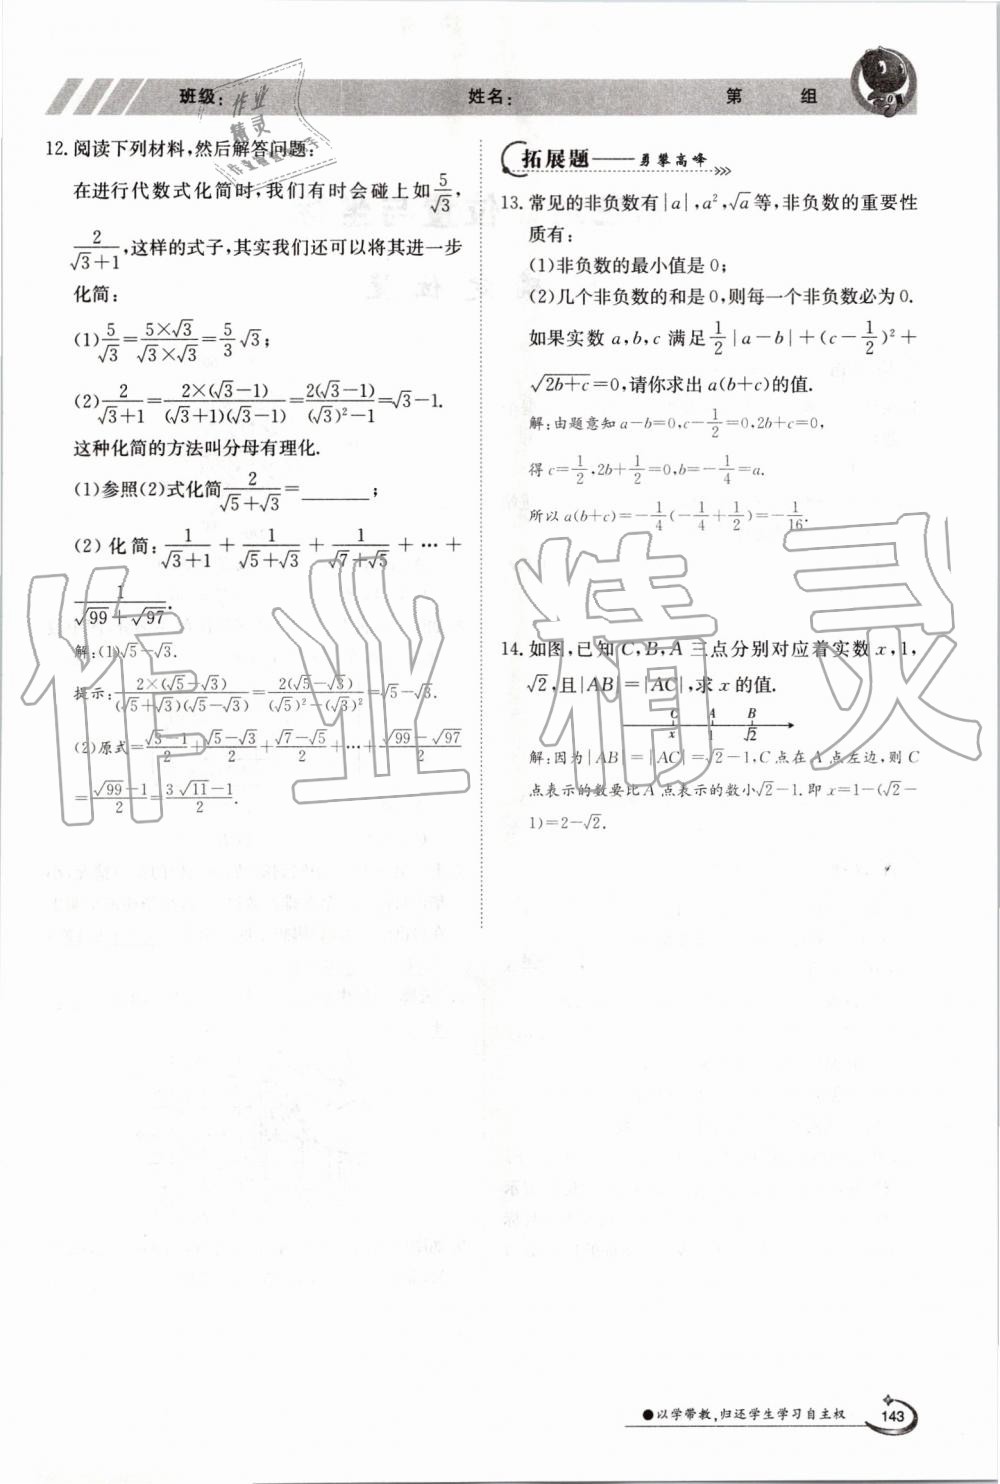 班级:
姓名:
第 组
12.阅读下列材料,然后解答问题:
在进行代数式化简时,我们有时会碰上如5/√3,
2/(√3+1),这样的式子,其实我们还可以将其进一步
化简:
(1)5/√3=(5×√3)/(√3×√3)=(5/3)√3;
(2)2/(√3+1)=2×(√3-1)/((√3+1)(√3-1))=2(√3-1)/((√3)²-1)=√3-1.
这种化简的方法叫分母有理化.
(1)参照(2)式化简2/(√5+√3)=______;
(2)化简:1/(√3+1)+1/(√5+√3)+1/(√7+√5)+…+
1/(√99+√97).
解:(1)√5-√3.
提示:2×(√5-√3)/((√5+√3)(√5-√3))=2(√5-√3)/((√5)²-(√3)²)=√5-√3.
(2)原式=(√3-1)/2+(√5-√3)/2+(√7-√5)/2+…+(√99-√97)/2
=(√99-1)/2=(3√11-1)/2.
拓展题——勇攀高峰
13.常见的非负数有|a|,a²,√a等,非负数的重要性
质有:
(1)非负数的最小值是0;
(2)几个非负数的和是0,则每一个非负数必为0.
如果实数a,b,c满足1/2|a-b|+(c-1/2)²+
√(2b+c)=0,请你求出a(b+c)的值.
解:由题意知a-b=0,c-1/2=0,2b+c=0,
得c=1/2,2b+1/2=0,b=-1/4=a.
所以a(b+c)=-1/4(-1/4+1/2)=-1/16.
14.如图,已知C,B,A三点分别对应着实数x,1,
√2,且|AB|=|AC|,求x的值.
C A B
x 1 √2
解:因为|AB|=|AC|=√2-1,C点在A点左边,则C
点表示的数要比A点表示的数小√2-1.即x=1-(√2-
1)=2-√2.
作业精灵
作业
精灵
●以学带教,归还学生学习自主权
143